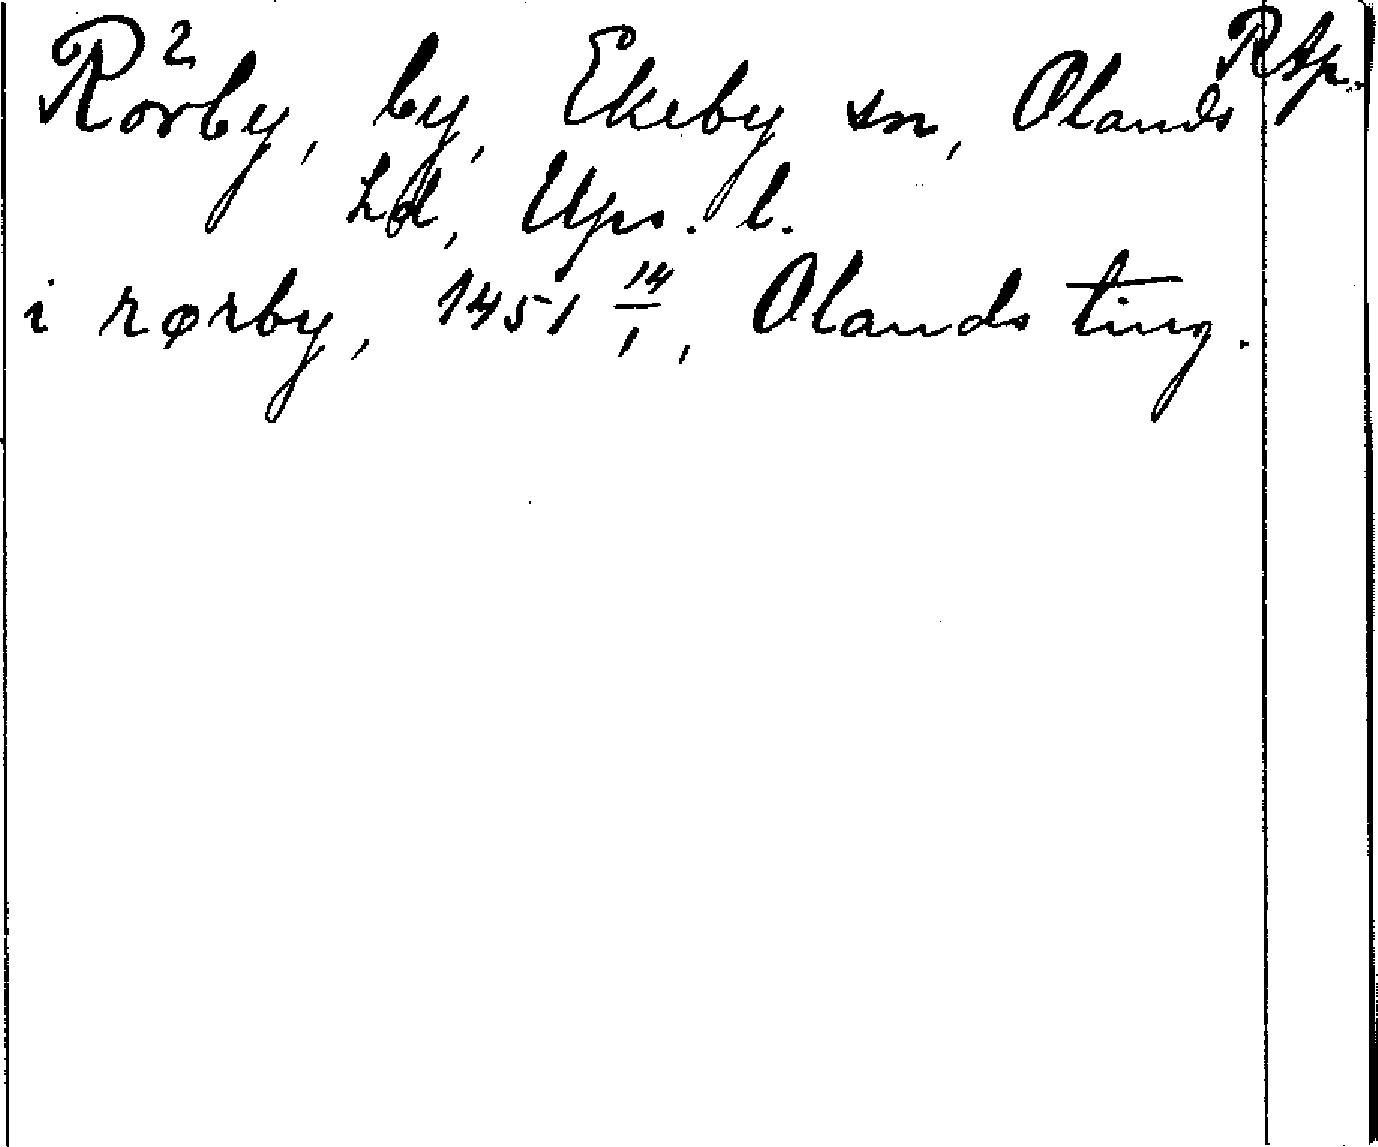 RAp.
Rörby, by, Ekeby sn, Olands
hd, Ups. l.
i rørby, 1451 14/1, Olands ting.